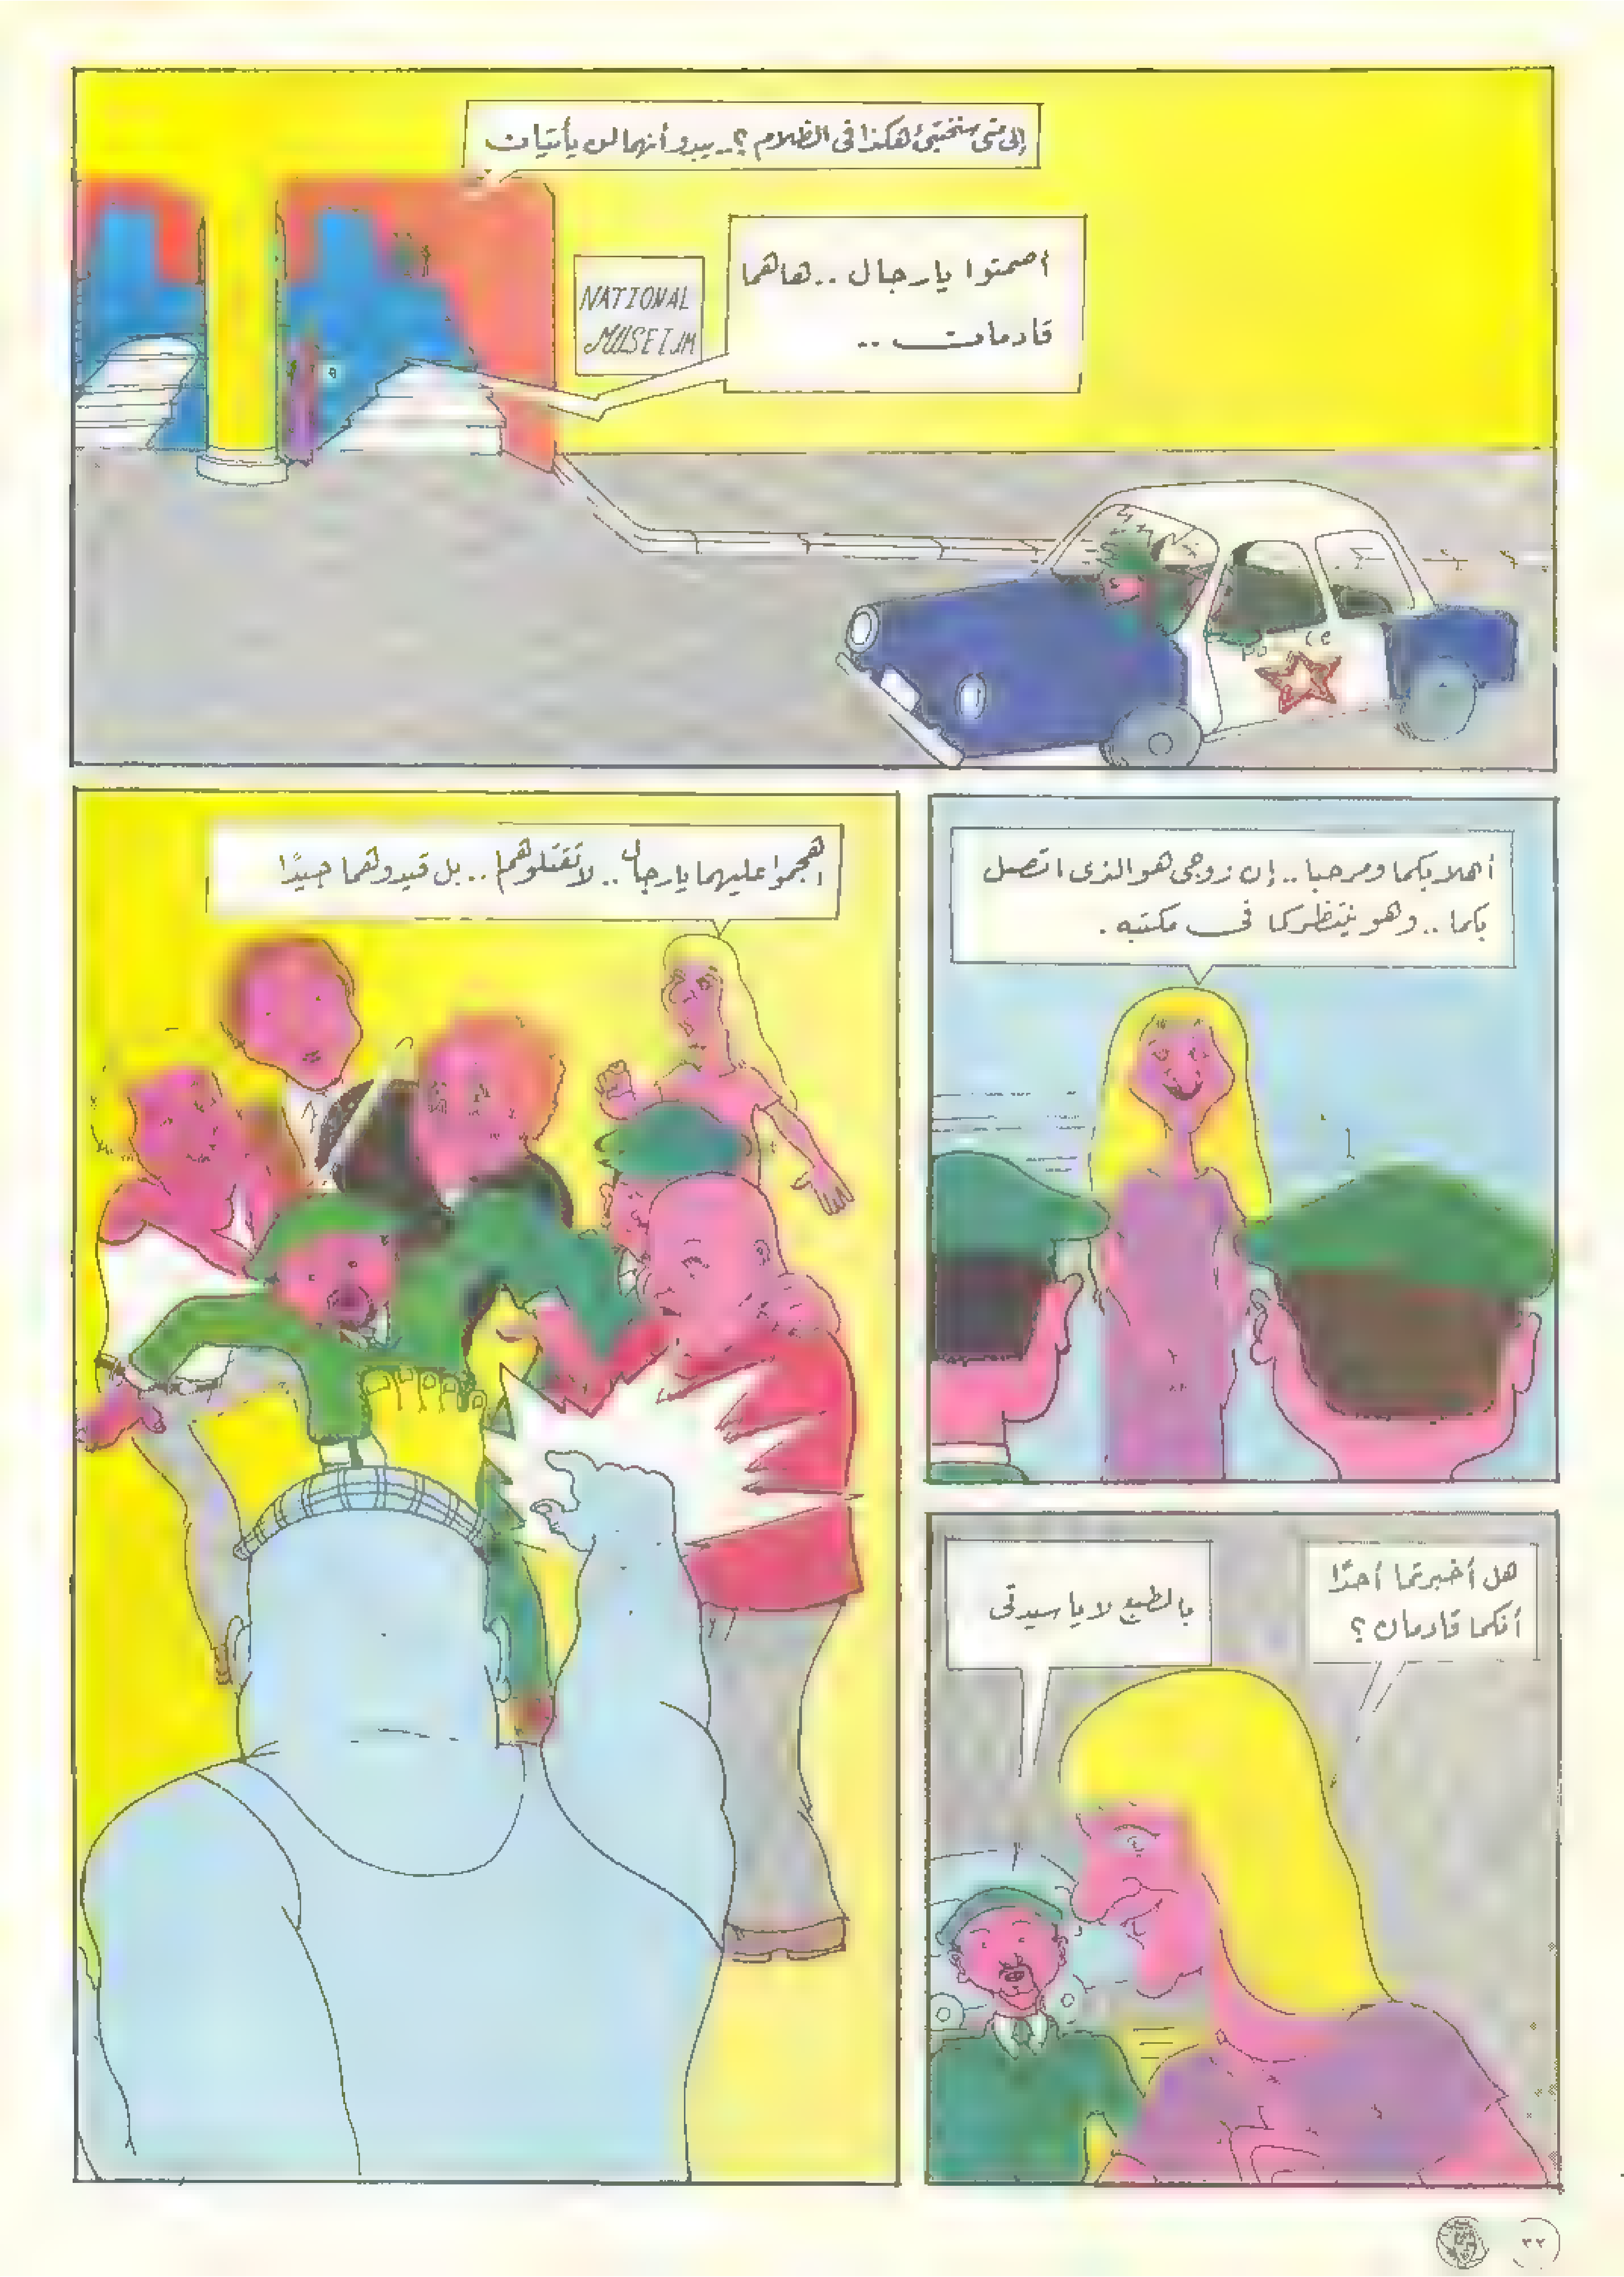 إلى متى سنختبئ هكذا فى الظلام ؟.. يبدو أنهما لن يأتيان
أصمتوا يا رجال .. ها هما
قادمان ..
NATIONAL
MUSEUM
أهلا بكما ومرحبا .. إن زوجى هو الذى اتصل
بكما .. وهو ينتظركما فى مكتبه .
هل أخبرتما أحدًا
أنكما قادمان ؟
بالطبع لا يا سيدتى
اهجموا عليهما يا رجال .. لا تقتلوهما .. بل قيدوهما جيدًا
٣٢